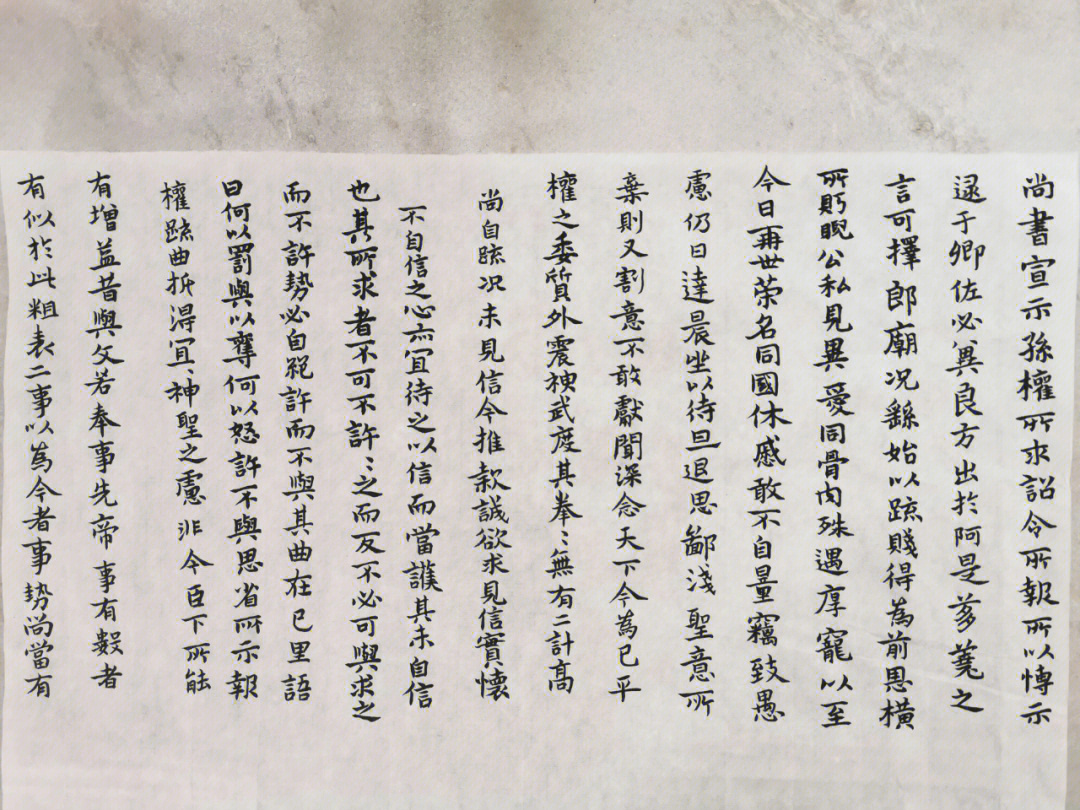 尚書宣示孫權所求詔令所報所以博示
逮于卿佐必冀良方出於阿是芻蕘之
言可擇郎廟況繇始以疏賤得為前恩橫
所貯睨公私見異愛同骨肉殊遇厚寵以至
今日再世榮名同國休慼敢不自量竊致愚
慮仍日達晨坐以待旦退思鄙淺聖意所
棄則又割意不敢獻聞深念天下今為已平
權之委質外震神武度其拳〻無有二計高
尚自疏況未見信今推款誠欲求見信實懷
不自信之心亦宜待之以信而當護其未自信
也其所求者不可不許〻之而反不必可與求之
而不許勢必自絕許而不與其曲在己里語
曰何以罰與以奪何以怒許不與思省所示報
權疏曲折得宜〻神聖之慮非今臣下所能
有增益昔與文若奉事先帝事有數者
有似於此粗表二事以為今者事勢尚當有